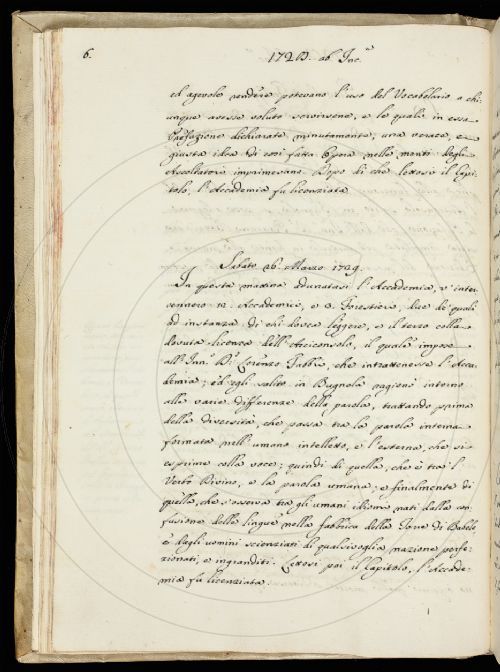 6.
1728. ab Inc.ne
ed agevole rendere potevano l'uso del Vocabolario a chi-
unque avesse voluto servirsene, e le quali in essa
Prefazione dichiarate minutamente, una verace, e
giusta idea di così fatta Opera nelle menti degli
Ascoltatori imprimevano. Dopo di che lettosi il Capi-
tolo, l'Accademia fu licenziata.
Sabato 26. Marzo 1729.
In questa mattina adunatasi l'Accademia, v'inter-
vennero 12. Accademici, e 3. Forestieri, due de' quali
ad instanza di chi dovea leggere, e il terzo colla
dovuta licenza dell'Arciconsolo, il quale impose
all'Inn. D. Lorenzo Gabbri, che intrattenesse l'Acca-
demia; ed egli salito in Bugnola ragionò intorno
alle varie differenze della parola, trattando prima
della diversità, che passa tra la parola interna
formata nell'umano intelletto, e l'esterna, che si
esprime colla voce; quindi di quella, che è tra 'l
Verbo Divino, e la parola umana, e finalmente di
quella, che s'osserva tra gli umani idiomi nati dalla con-
fusione delle lingue nella fabbrica della Torre di Babele
e dagli uomini scienziati di qualsivoglia nazione perfe-
zionati, e ingranditi. Lettosi poi il Capitolo, l'Accade-
mia fu licenziata.